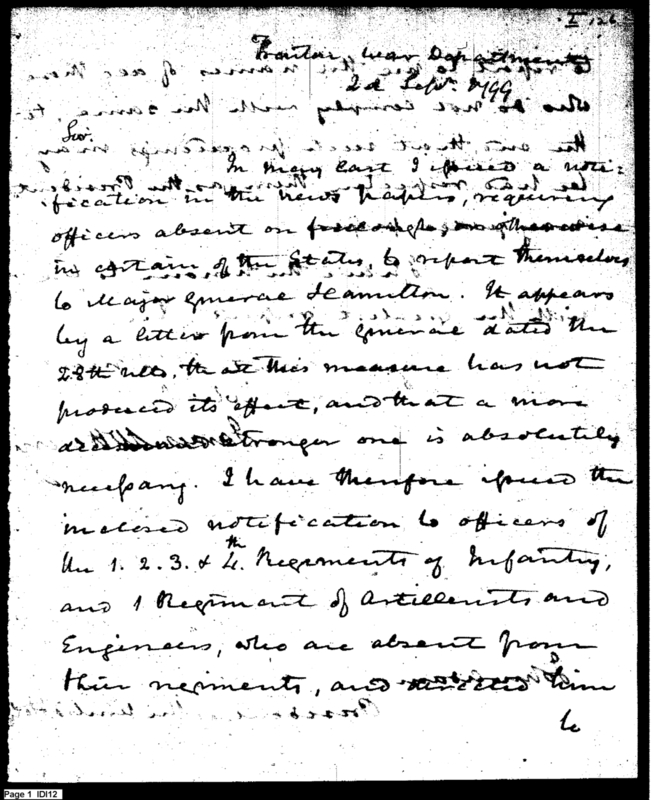 I 126
Trenton War Department
2d Sepr. 1799
Sir.
In May last I issued a noti=
fication in the news papers, requiring
officers absent on furlough, or otherwise
in certain of the States, to report themselves
to Major General Hamilton. It appears
by a letter from the General dated the
28th ulto, that this measure has not
produced its effect, and that a more
stronger one is absolutely
necessary. I have therefore issued the
inclosed notification to officers of
the 1. 2. 3. & 4th. Regiments of Infantry,
and 1 Regiment of Artillerists and
Engineers, who are absent from
their regiments, and directed him
to
Page 1 IDI12